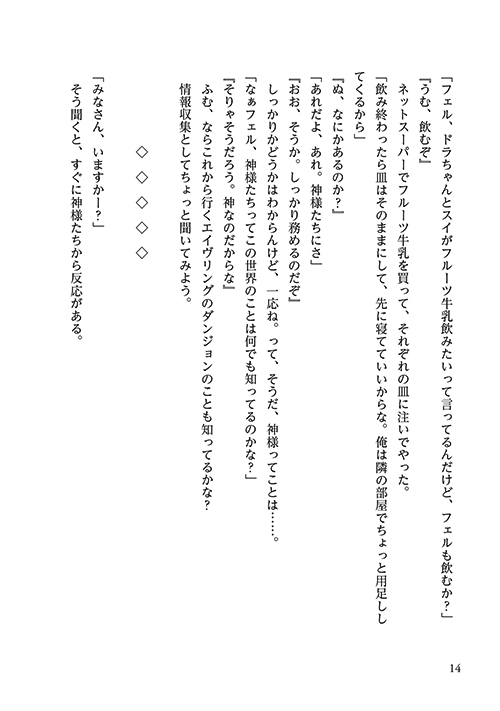 「フェル、ドラちゃんとスイがフルーツ牛乳飲みたいって言ってるんだけど、フェルも飲むか？」
『うむ、飲むぞ』
ネットスーパーでフルーツ牛乳を買って、それぞれの皿に注いでやった。
「飲み終わったら皿はそのままにして、先に寝てていいからな。俺は隣の部屋でちょっと用足しし
てくるから」
『ぬ、なにかあるのか？』
「あれだよ、あれ。神様たちにさ」
『おお、そうか。しっかり務めるのだぞ』
しっかりかどうかはわからんけど、一応ね。って、そうだ、神様ってことは……。
「なぁフェル、神様たちってこの世界のことは何でも知ってるのかな？」
『そりゃそうだろう。神なのだからな』
ふむ、ならこれから行くエイヴリングのダンジョンのことも知ってるかな？
情報収集としてちょっと聞いてみよう。
◇ ◇ ◇ ◇ ◇
「みなさん、いますかー？」
そう聞くと、すぐに神様たちから反応がある。
14